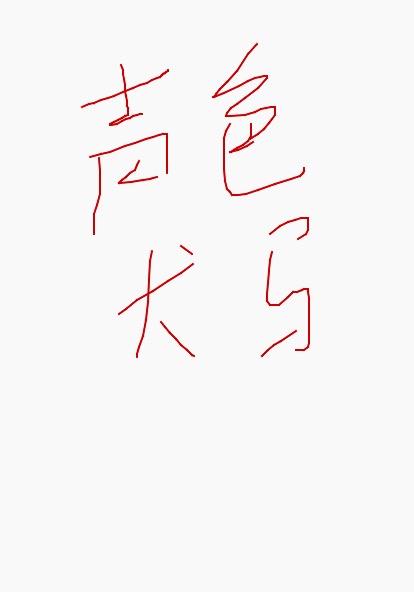 声色
犬马